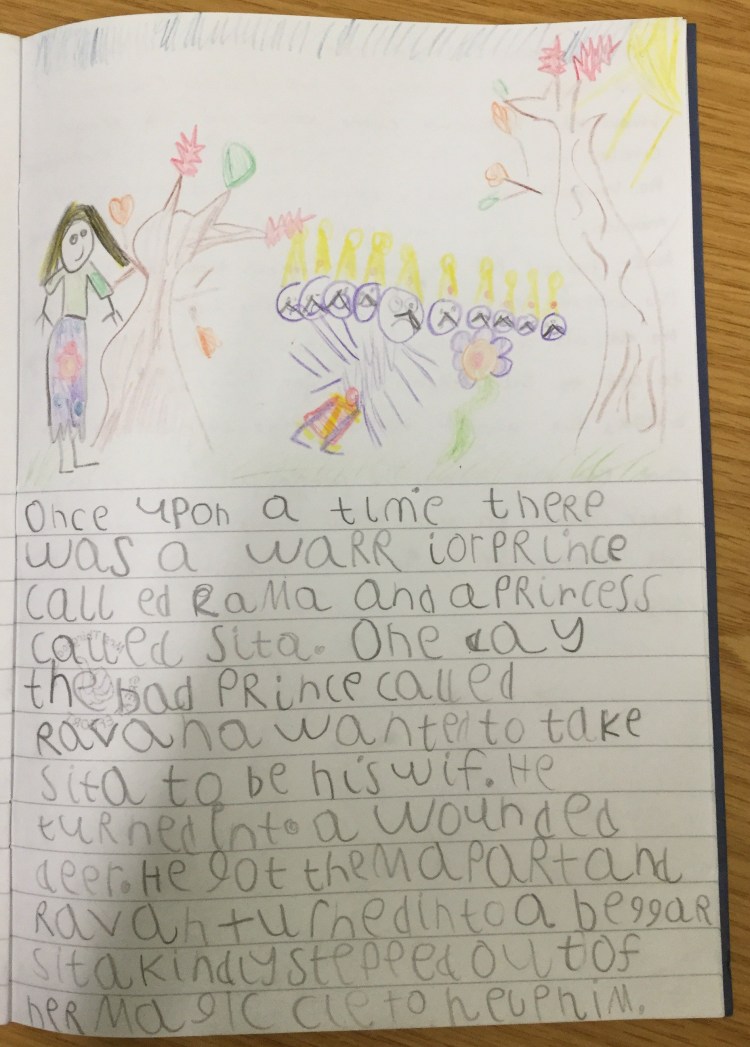 Once upon a time there
was a warrior prince
called Rama and a princess
called Sita. One day
the bad prince called
Ravana wanted to take
Sita to be his wif. He
turned into a wounded
deer. He got them apart and
Ravan turned into a beggar
Sita kindly stepped out of
her magic cle to help him.